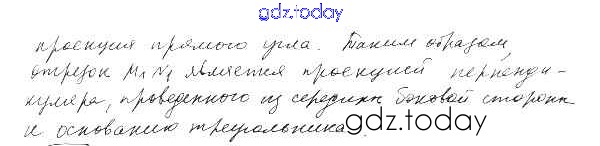 gdz.today
проекция прямого угла. Таким образом,
отрезок M₁N₁ является проекцией перпенди-
куляра, проведенного из середины боковой стороны
к основанию треугольника.
gdz.today